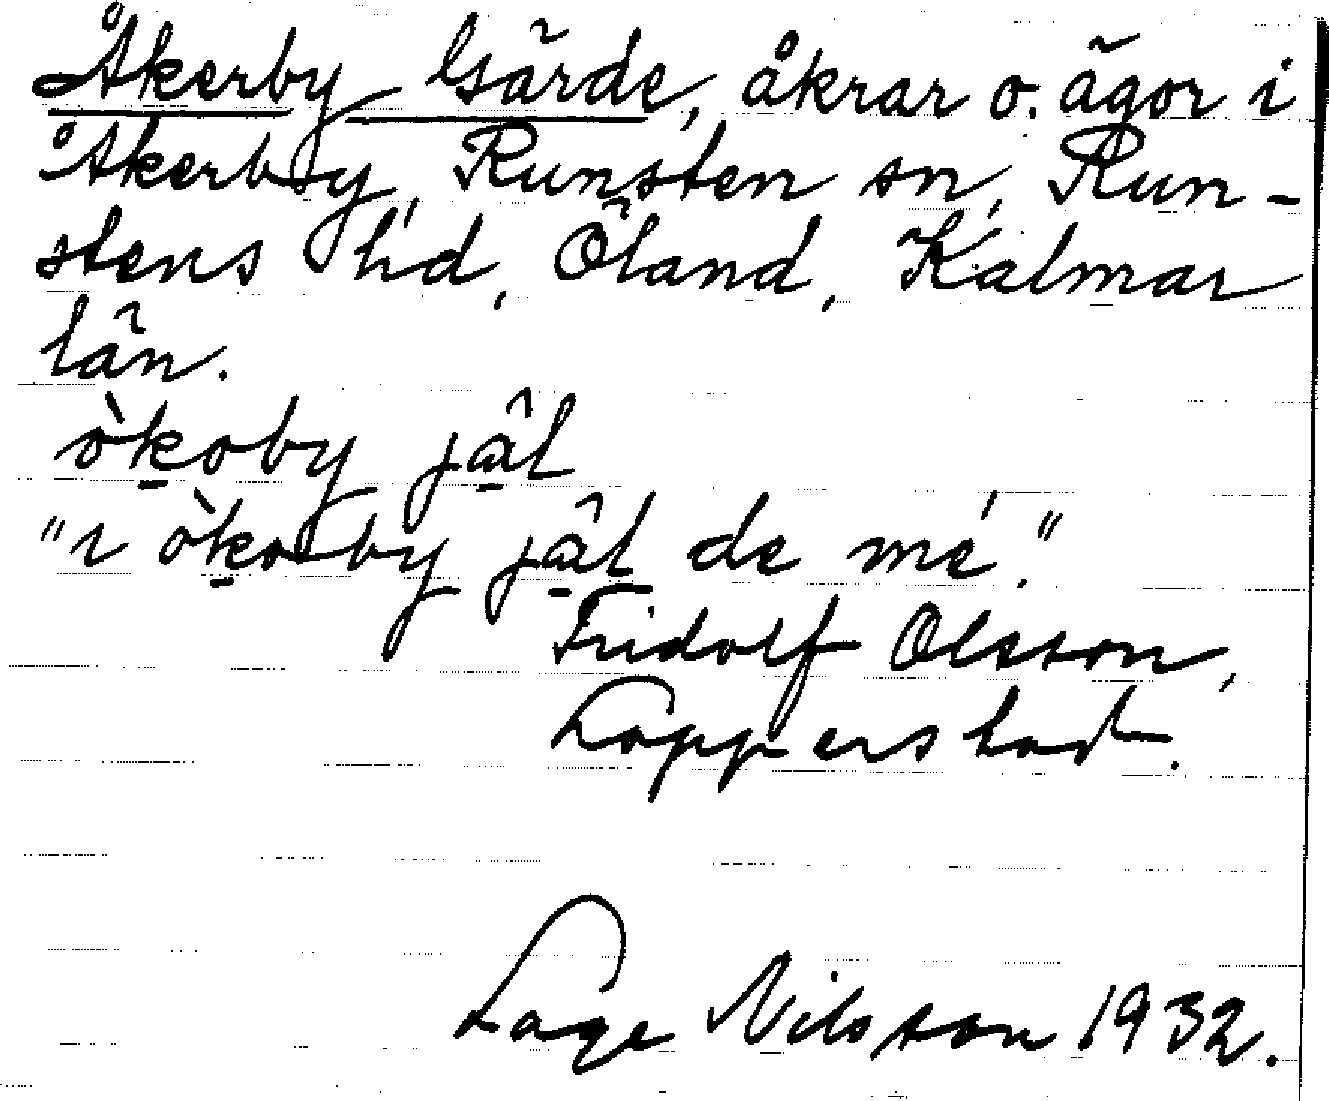 Åkerby Gärde, åkrar o. ägor i
Åkerby, Runsten sn, Run-
stens hd, Öland, Kalmar
län.
òkoby jâl
"i òkoby jâl de mé."
Fridolf Olsson,
Loppersdad.
Lage Nilsson 1932.